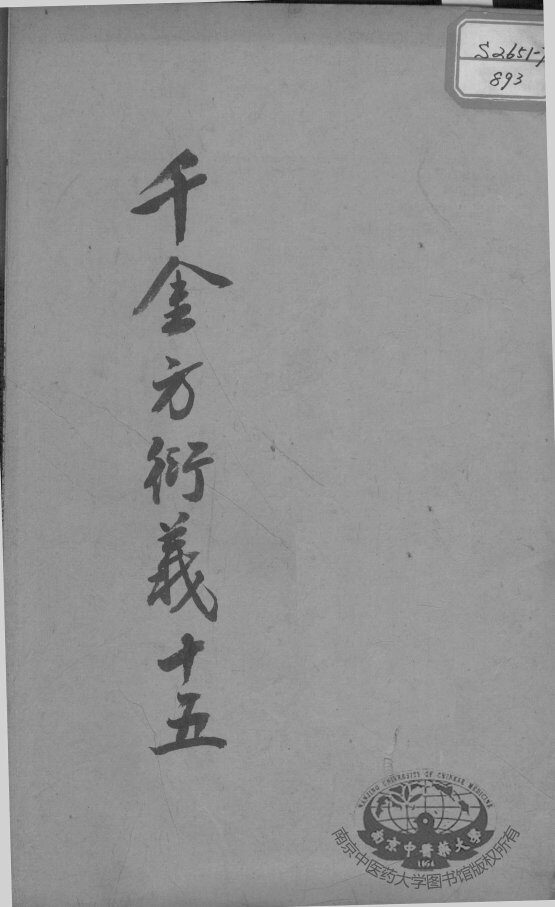 S2651-7
893
千金方衍義十五
NANJING UNIVERSITY OF CHINESE MEDICINE
南京中醫藥大學
1954
南京中医药大学图书馆版权所有